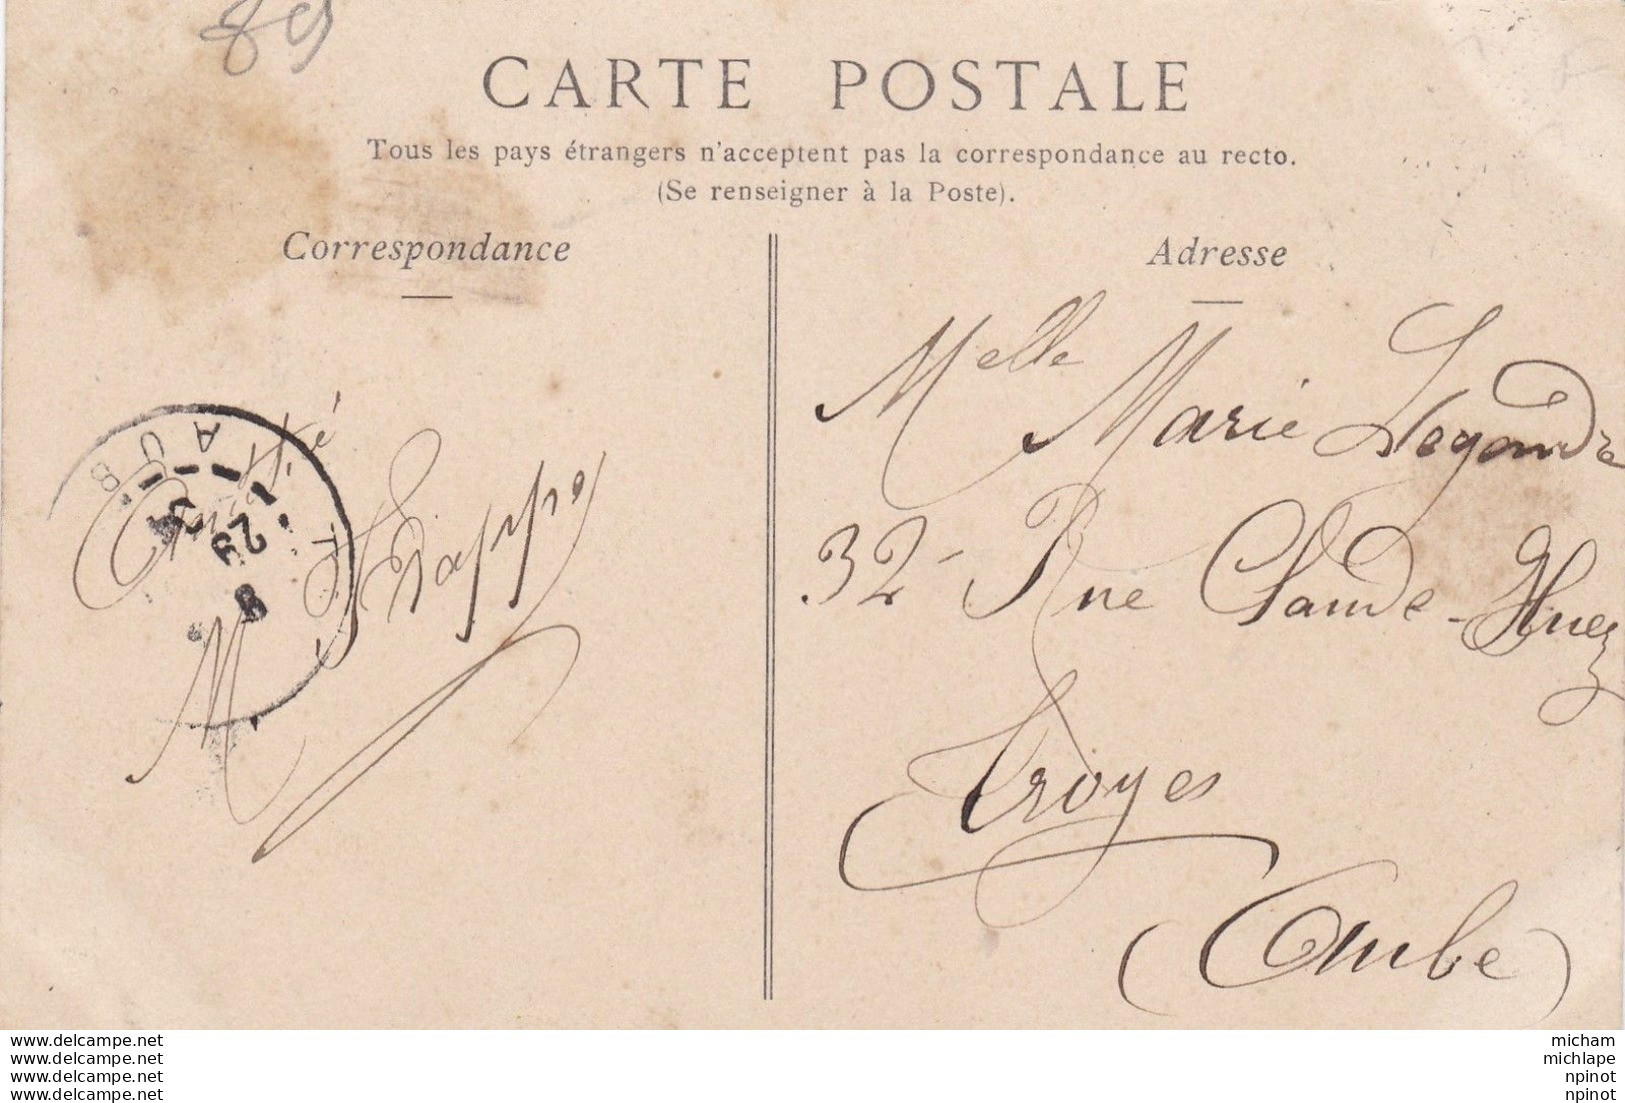 89
CARTE POSTALE
Tous les pays étrangers n'acceptent pas la correspondance au recto.
(Se renseigner à la Poste).
Correspondance
Amitié
M
AUB
23
8
Adresse
Melle Marie Legendre
32 - Rue Claude-Huez
Troyes
(Aube)
www.delcampe.net
www.delcampe.net
www.delcampe.net
www.delcampe.net
micham
michlape
npinot
npinot